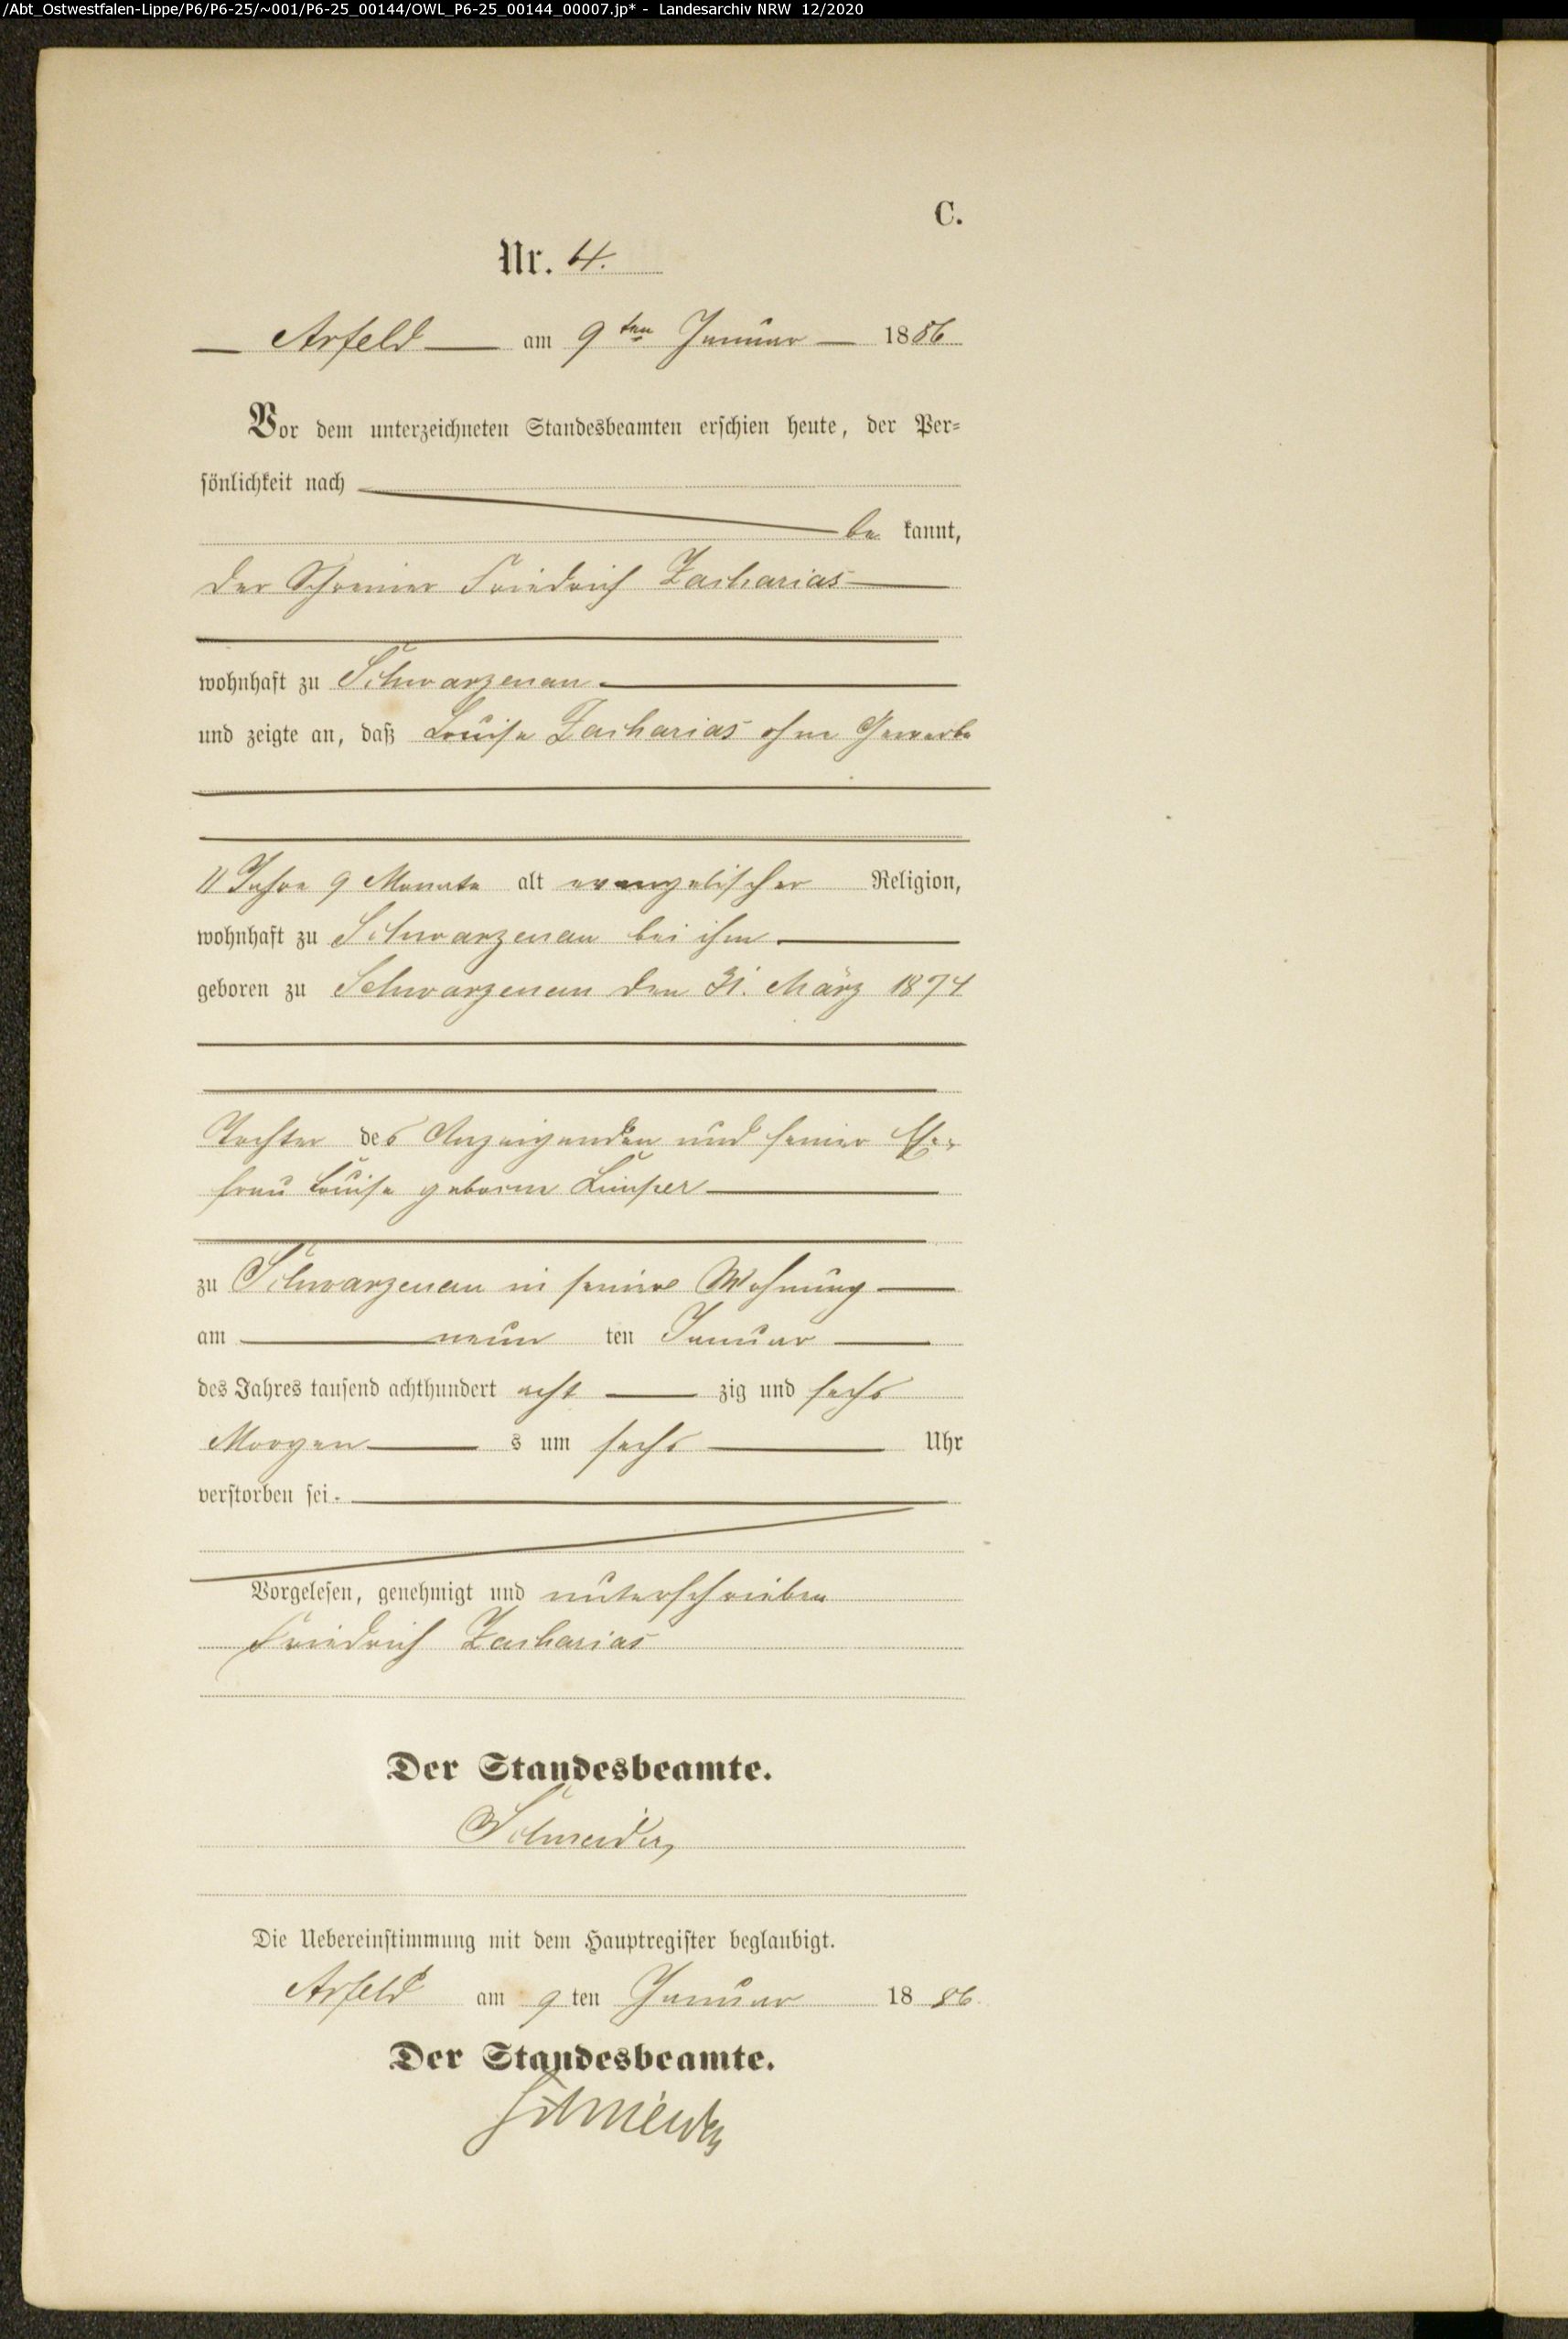 /Abt_Ostwestfalen-Lippe/P6/P6-25/~001/P6-25_00144/OWL_P6-25_00144_00007.jp* - Landesarchiv NRW 12/2020
C.
Nr. 4.
Arfeld am 9ten Januar 1886
Vor dem unterzeichneten Standesbeamten erschien heute, der Per=
sönlichkeit nach
be kannt,
der Schreiner Friedrich Zacharias
wohnhaft zu Schwarzenau
und zeigte an, daß Louise Zacharias ohne Gewerbe
11 Jahre 9 Monate alt evangelischer Religion,
wohnhaft zu Schwarzenau bei ihm
geboren zu Schwarzenau den 31. März 1874
Tochter des Anzeigenden und seiner Ehe-
frau Louise geborne
zu Schwarzenau in seiner Wohnung
am neun ten Januar
des Jahres tausend achthundert acht zig und sechs
Morgen s um sechs Uhr
verstorben sei.
Vorgelesen, genehmigt und unterschrieben
Friedrich Zacharias
Der Standesbeamte.
Schneider
Die Uebereinstimmung mit dem Hauptregister beglaubigt.
Arfeld am 9 ten Januar 18 86.
Der Standesbeamte.
Schneider